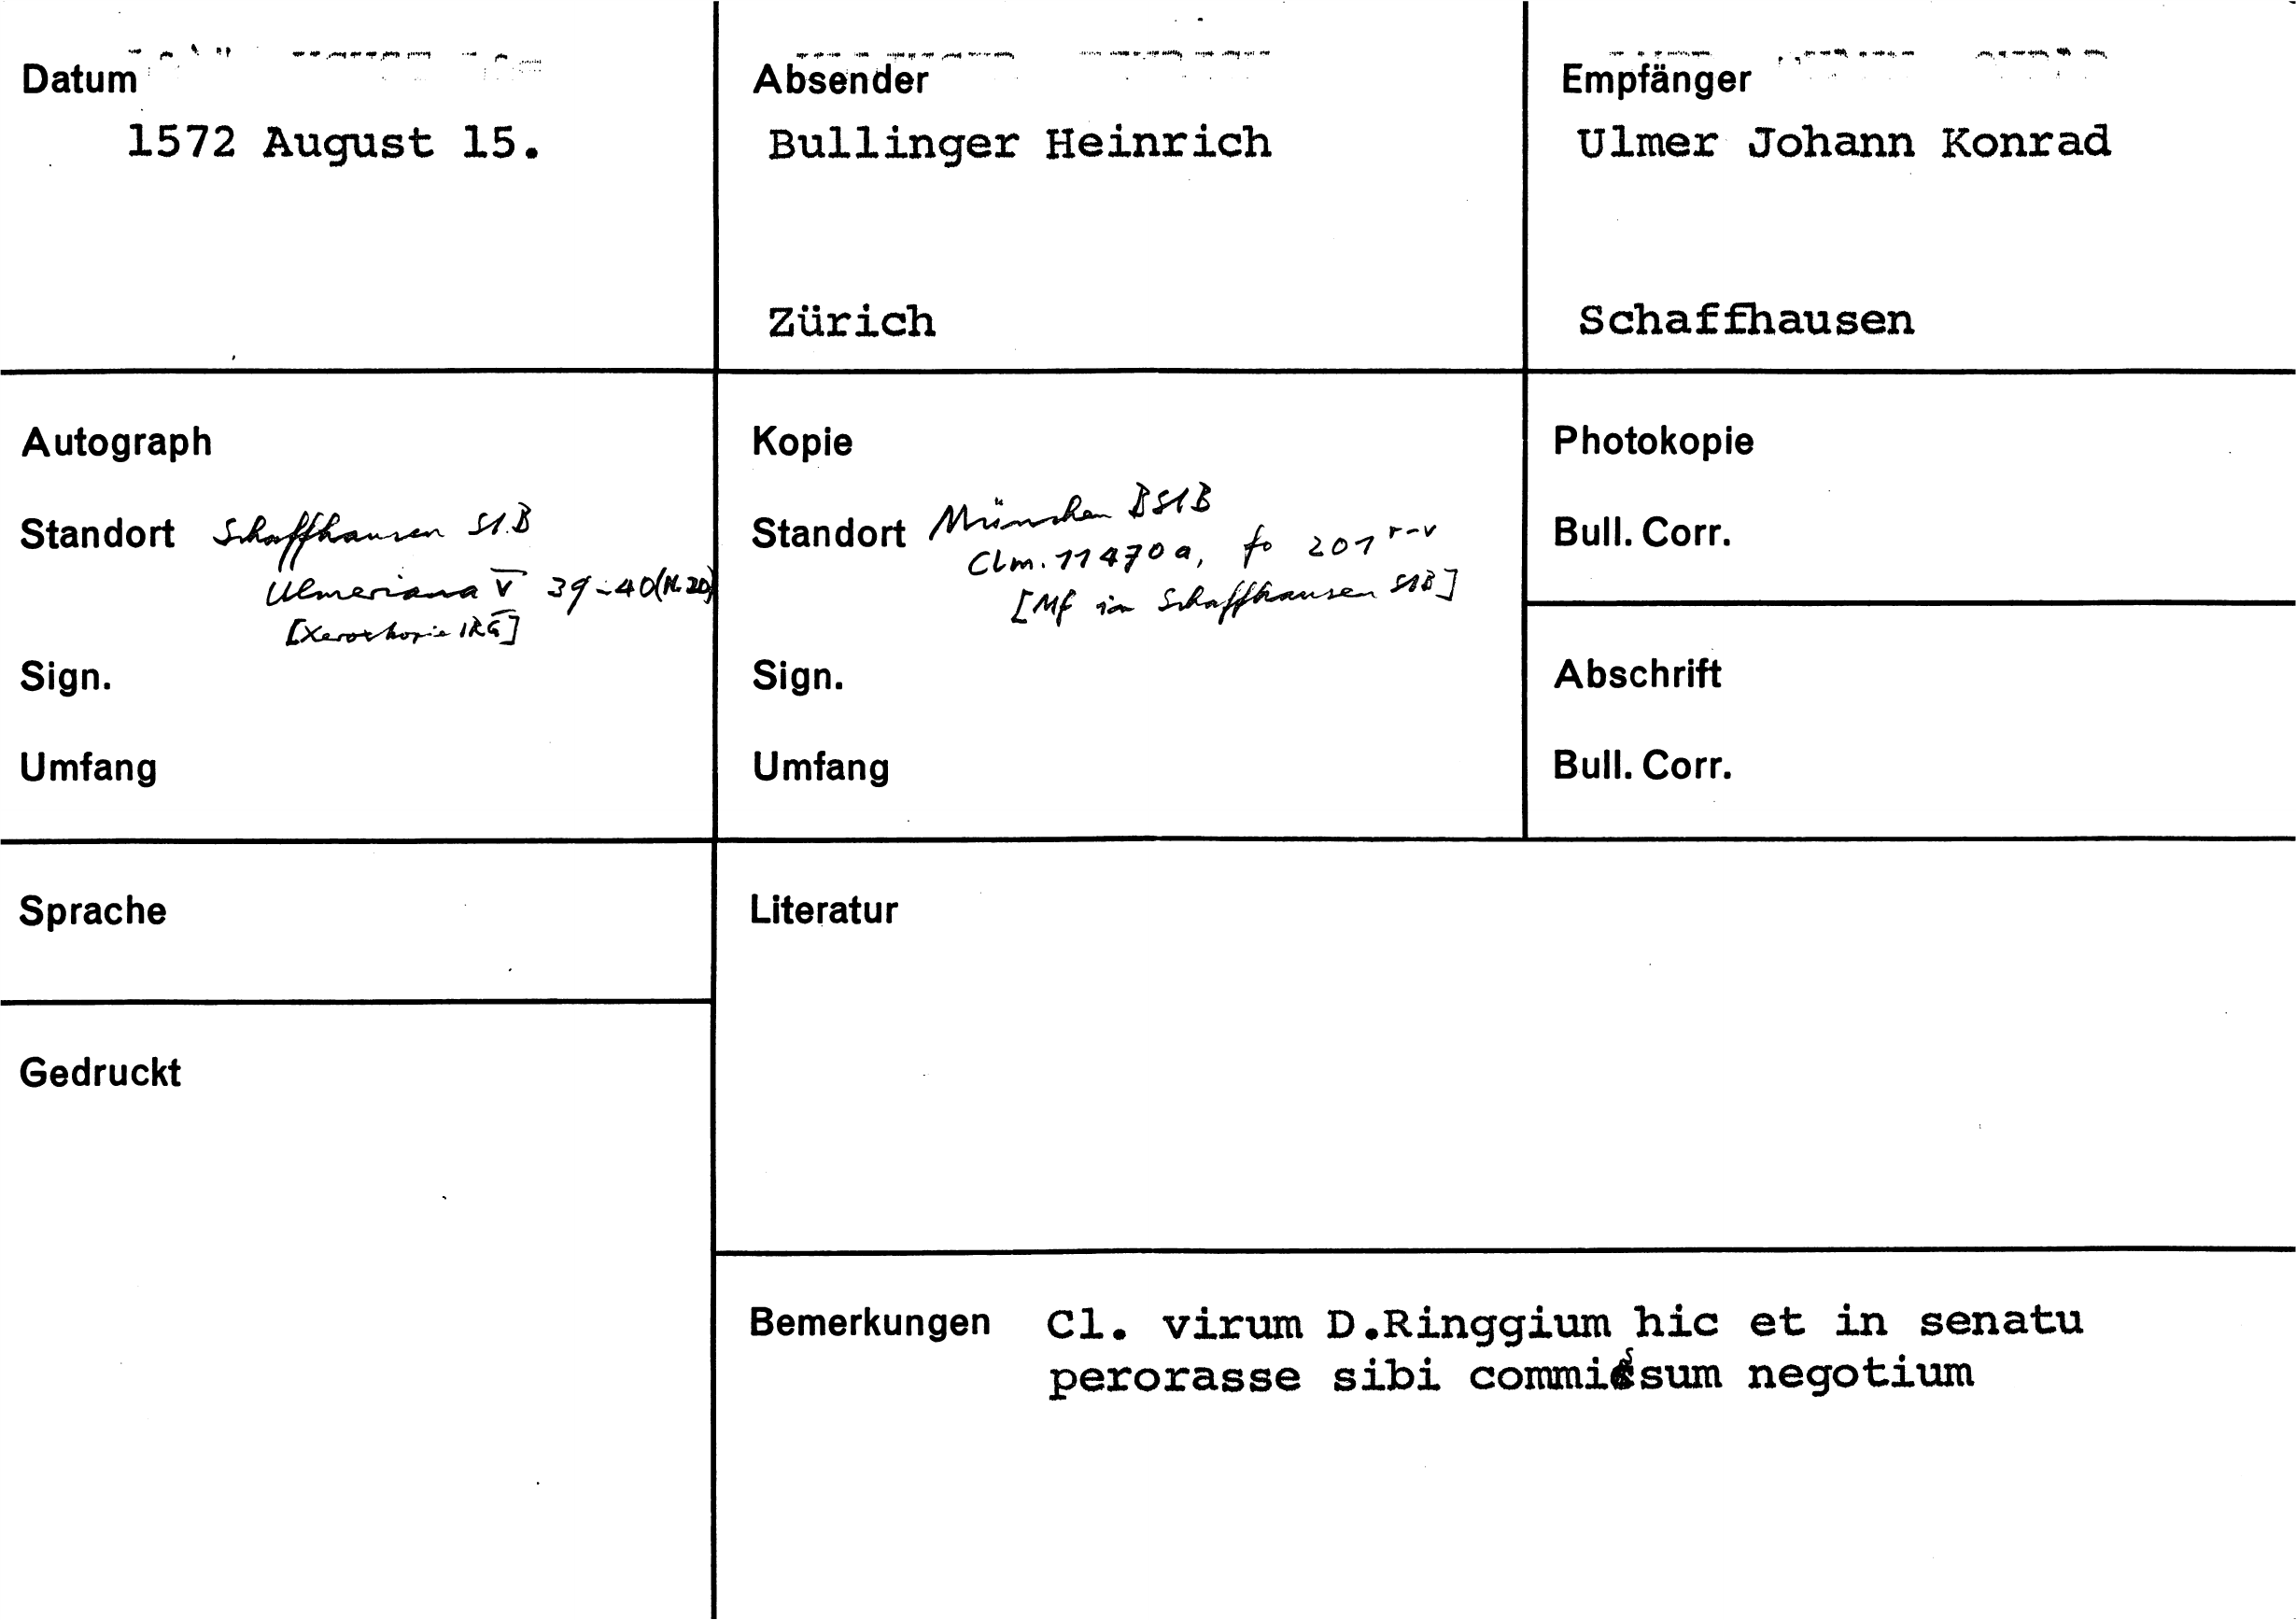 Datum
1572 August 15.
Absender
Bullinger Heinrich
Zürich
Empfänger
Ulmer Johann Konrad
Schaffhausen
Autograph
Standort Schaffhausen StB
Ulmeriana V 39-40 (N. 20)
[Xerokopie IRG]
Sign.
Umfang
Kopie
Standort München BStB
Clm. 11470a, fo 201 r-v
[Mf in Schaffhausen StB]
Sign.
Umfang
Photokopie
Bull. Corr.
Abschrift
Bull. Corr.
Sprache
Gedruckt
Literatur
Bemerkungen Cl. virum D.Ringgium hic et in senatu
perorasse sibi commissum negotium